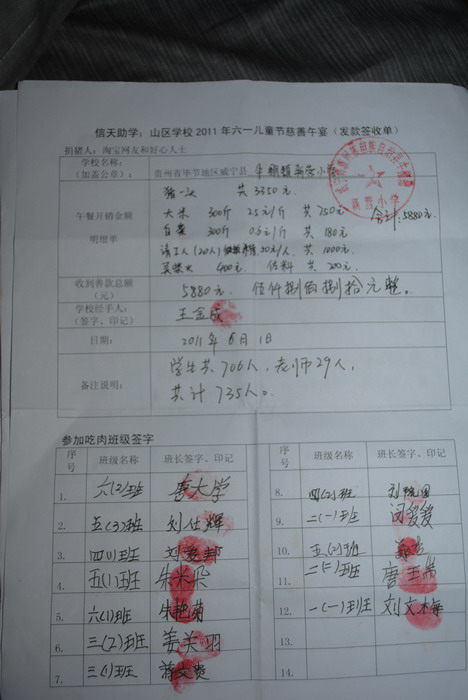 信天助学：山区学校 2011 年六一儿童节慈善午宴（发款签收单）
捐猪人：淘宝网友和好心人士
学校名称：
（加盖公章）： 贵州省毕节地区威宁县
猪一头 共3350元
午餐开销金额
明细单
大米 300斤 2.5元/斤 共750元 合计:5880元
白菜 300斤 0.6元/斤 共180元
请工人(20人) 50元/人 共1000元
400元 佐料 共200元
收到善款总额
（元）
5880元 伍仟捌佰捌拾元整。
学校经手人：
（签字、印记）
王金成
日期： 2011年6月1日
备注说明：
学生共706人，老师29人，
共计735人。
参加吃肉班级签字
序号 班级名称 班长签字、印记 序号 班级名称 班长签字、印记
1. 六(2)班 唐大学 8. 四(2)班
2. 五(3)班 刘仕辉 9. 二(一)班 闵爱爱
3. 四(1)班 10. 五(2)班
4. 五(1)班 朱米朵 11. 二(二)班
5. 六(1)班 朱艳菊 12. 一(一)班
6. 三(2)班 姜关羽 13.
7. 三(1)班 蒋文贵 14.